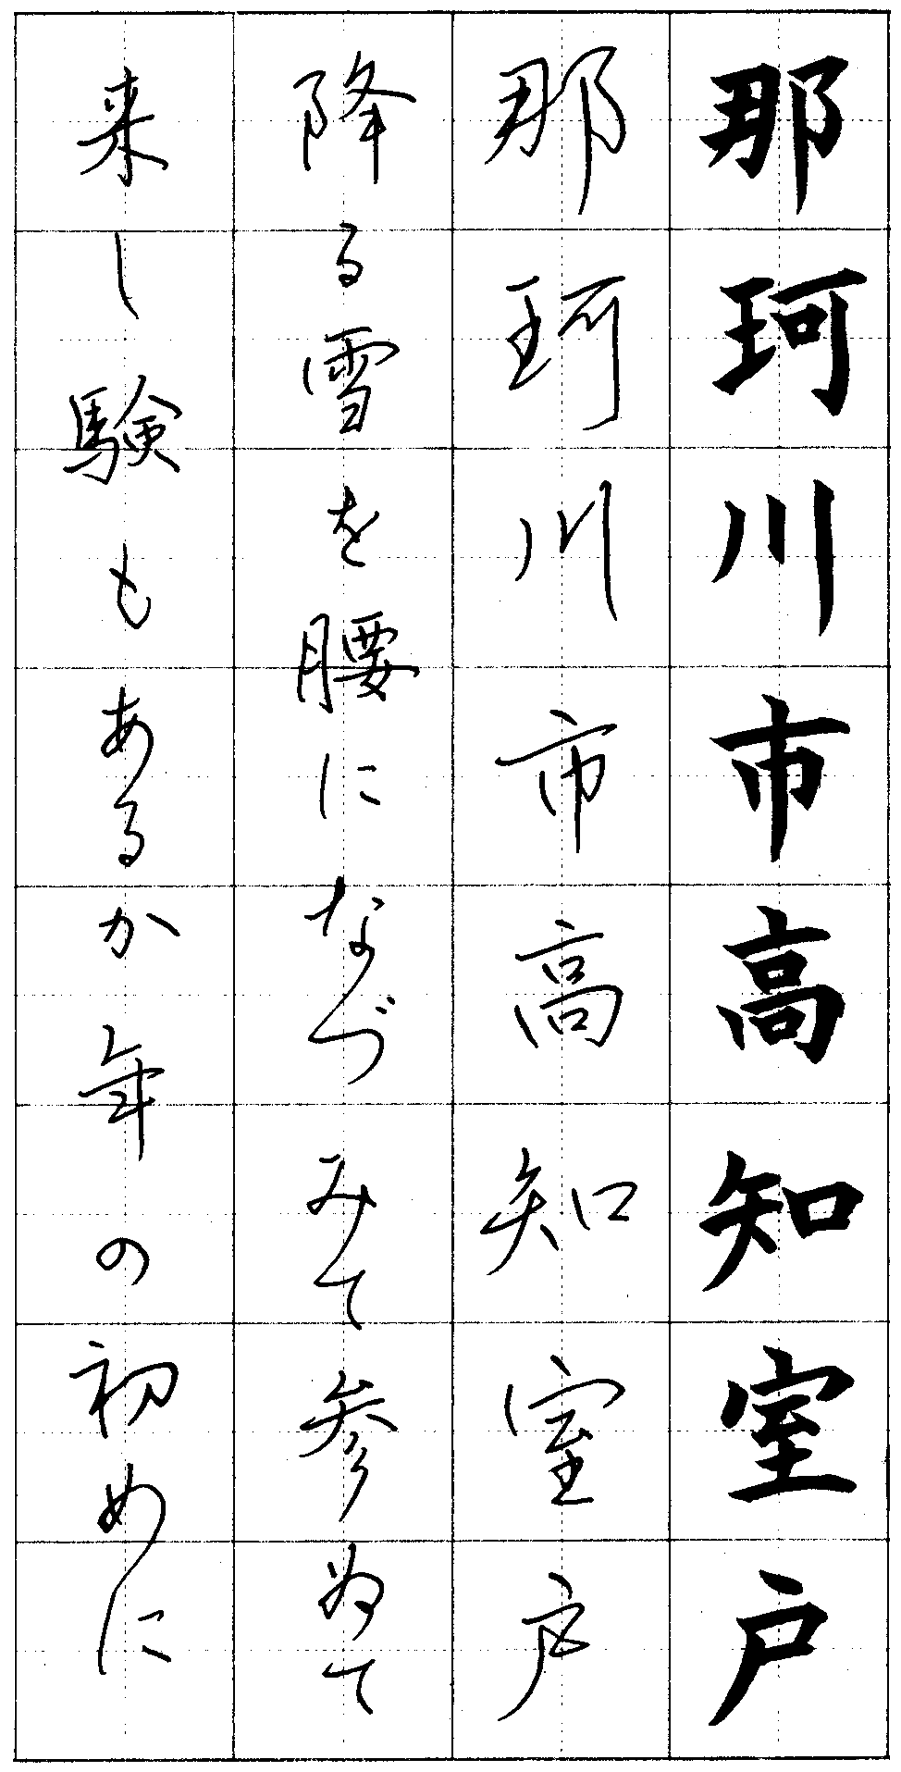 那珂川市高知室戸
那珂川市高知室戸
降る雪を腰になづみて参ゐて
来し験もあるか年の初めに